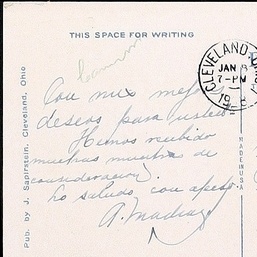 THIS SPACE FOR WRITING
Con mis mejores
deseos para usted
Hemos recibido
muchas muestras de
consideración.
Lo saludo con afecto.
A. Madrazo
Pub. by J. Sapirstein, Cleveland, Ohio
CLEVELAND
JAN
7-PM
MADE IN USA